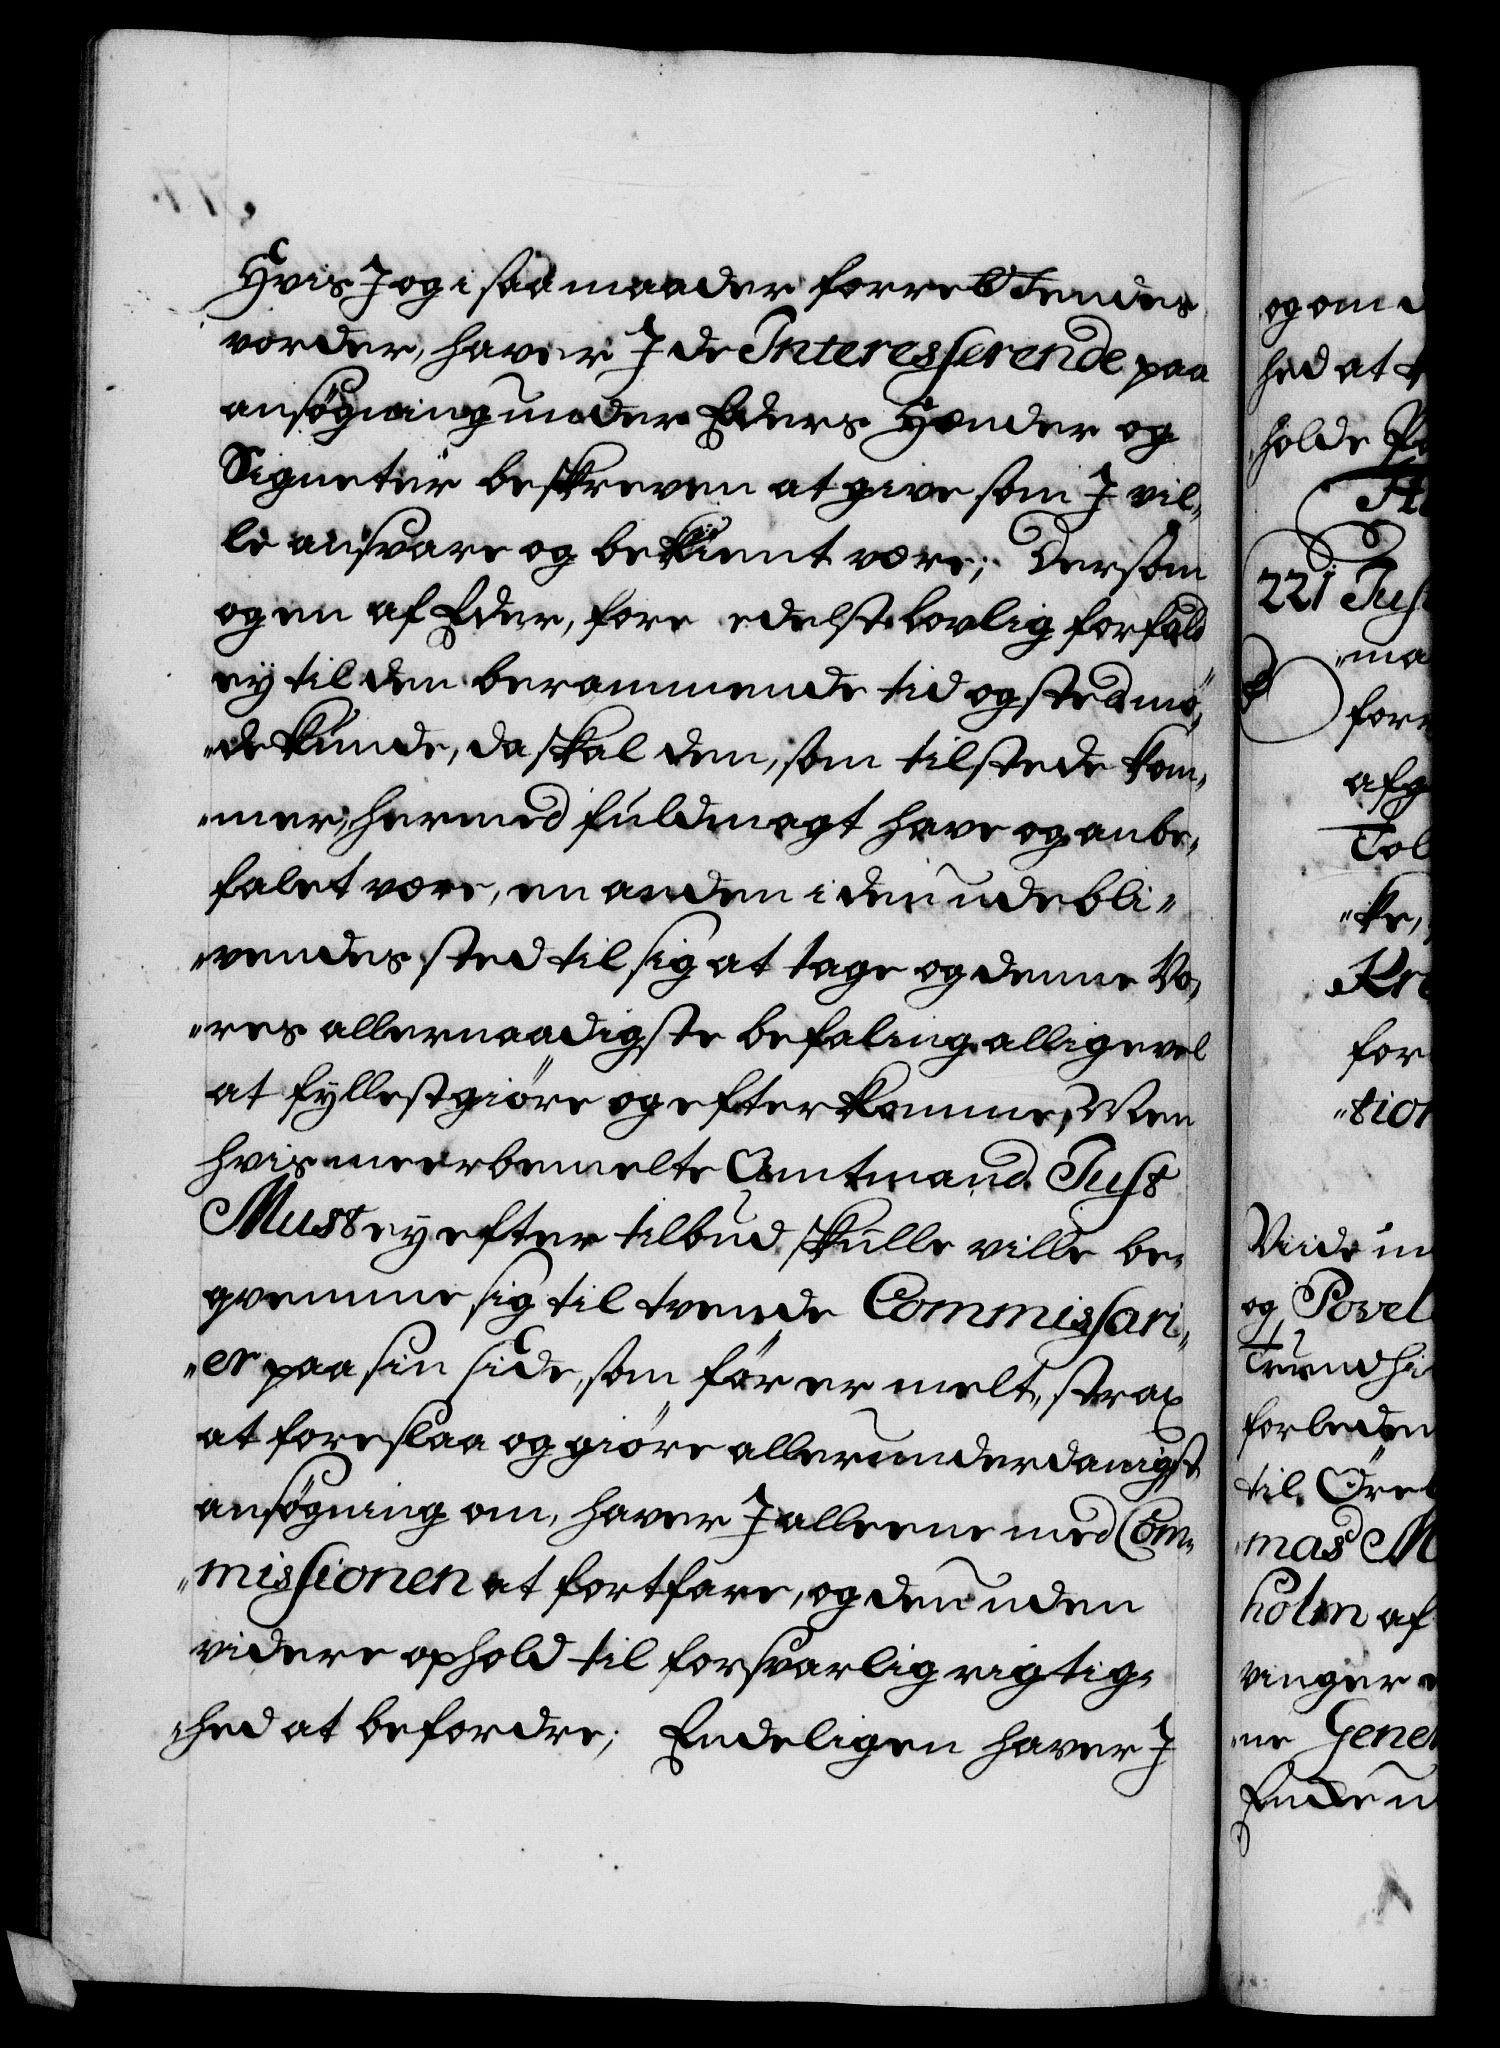 Hvis I og i saa maader forrettendes
vorder, haver I de Interesserende paa
ansøgning under Eders Hænder og
Signeter beskreven at give som I vil„
le ansvare og bekient være; Dersom
og en af Eder, fore edelst Lovlig forfald
ey til den berammende tid og sted mö„
„de kunde, da skal den, som tilstede kom„
„mer, hermed fuldmagt have og anbe„
falet være, en anden i den udebli„
„vendes sted til sig at tage og denne Vo„
„res allernaadigste befaling alligevel
at fyllestgiöre og efterkomme, Men
hvis meerbemelte Amtmand Just
Must ey efter tilbud skulle ville be„
qvemme sig til tvende Commissari„
„er paa sin side, som för er melt, strax
at foreslaa og giöre allerunderdanigst
ansögning om, haver I alleene med Com„
„missionen at fortfare, og den uden
videre ophold til forsvarlig rigtig„
„hed at befordre; Endeligen haver I
og om
hed at
holde
221 Just
„ma
for
afg
Tol
„ke,
Kre
for
„tion
Viide
og Povel
Trundhi
forleden
til Öre
„mas M
holm af
vinger
„ne Gene
Ende